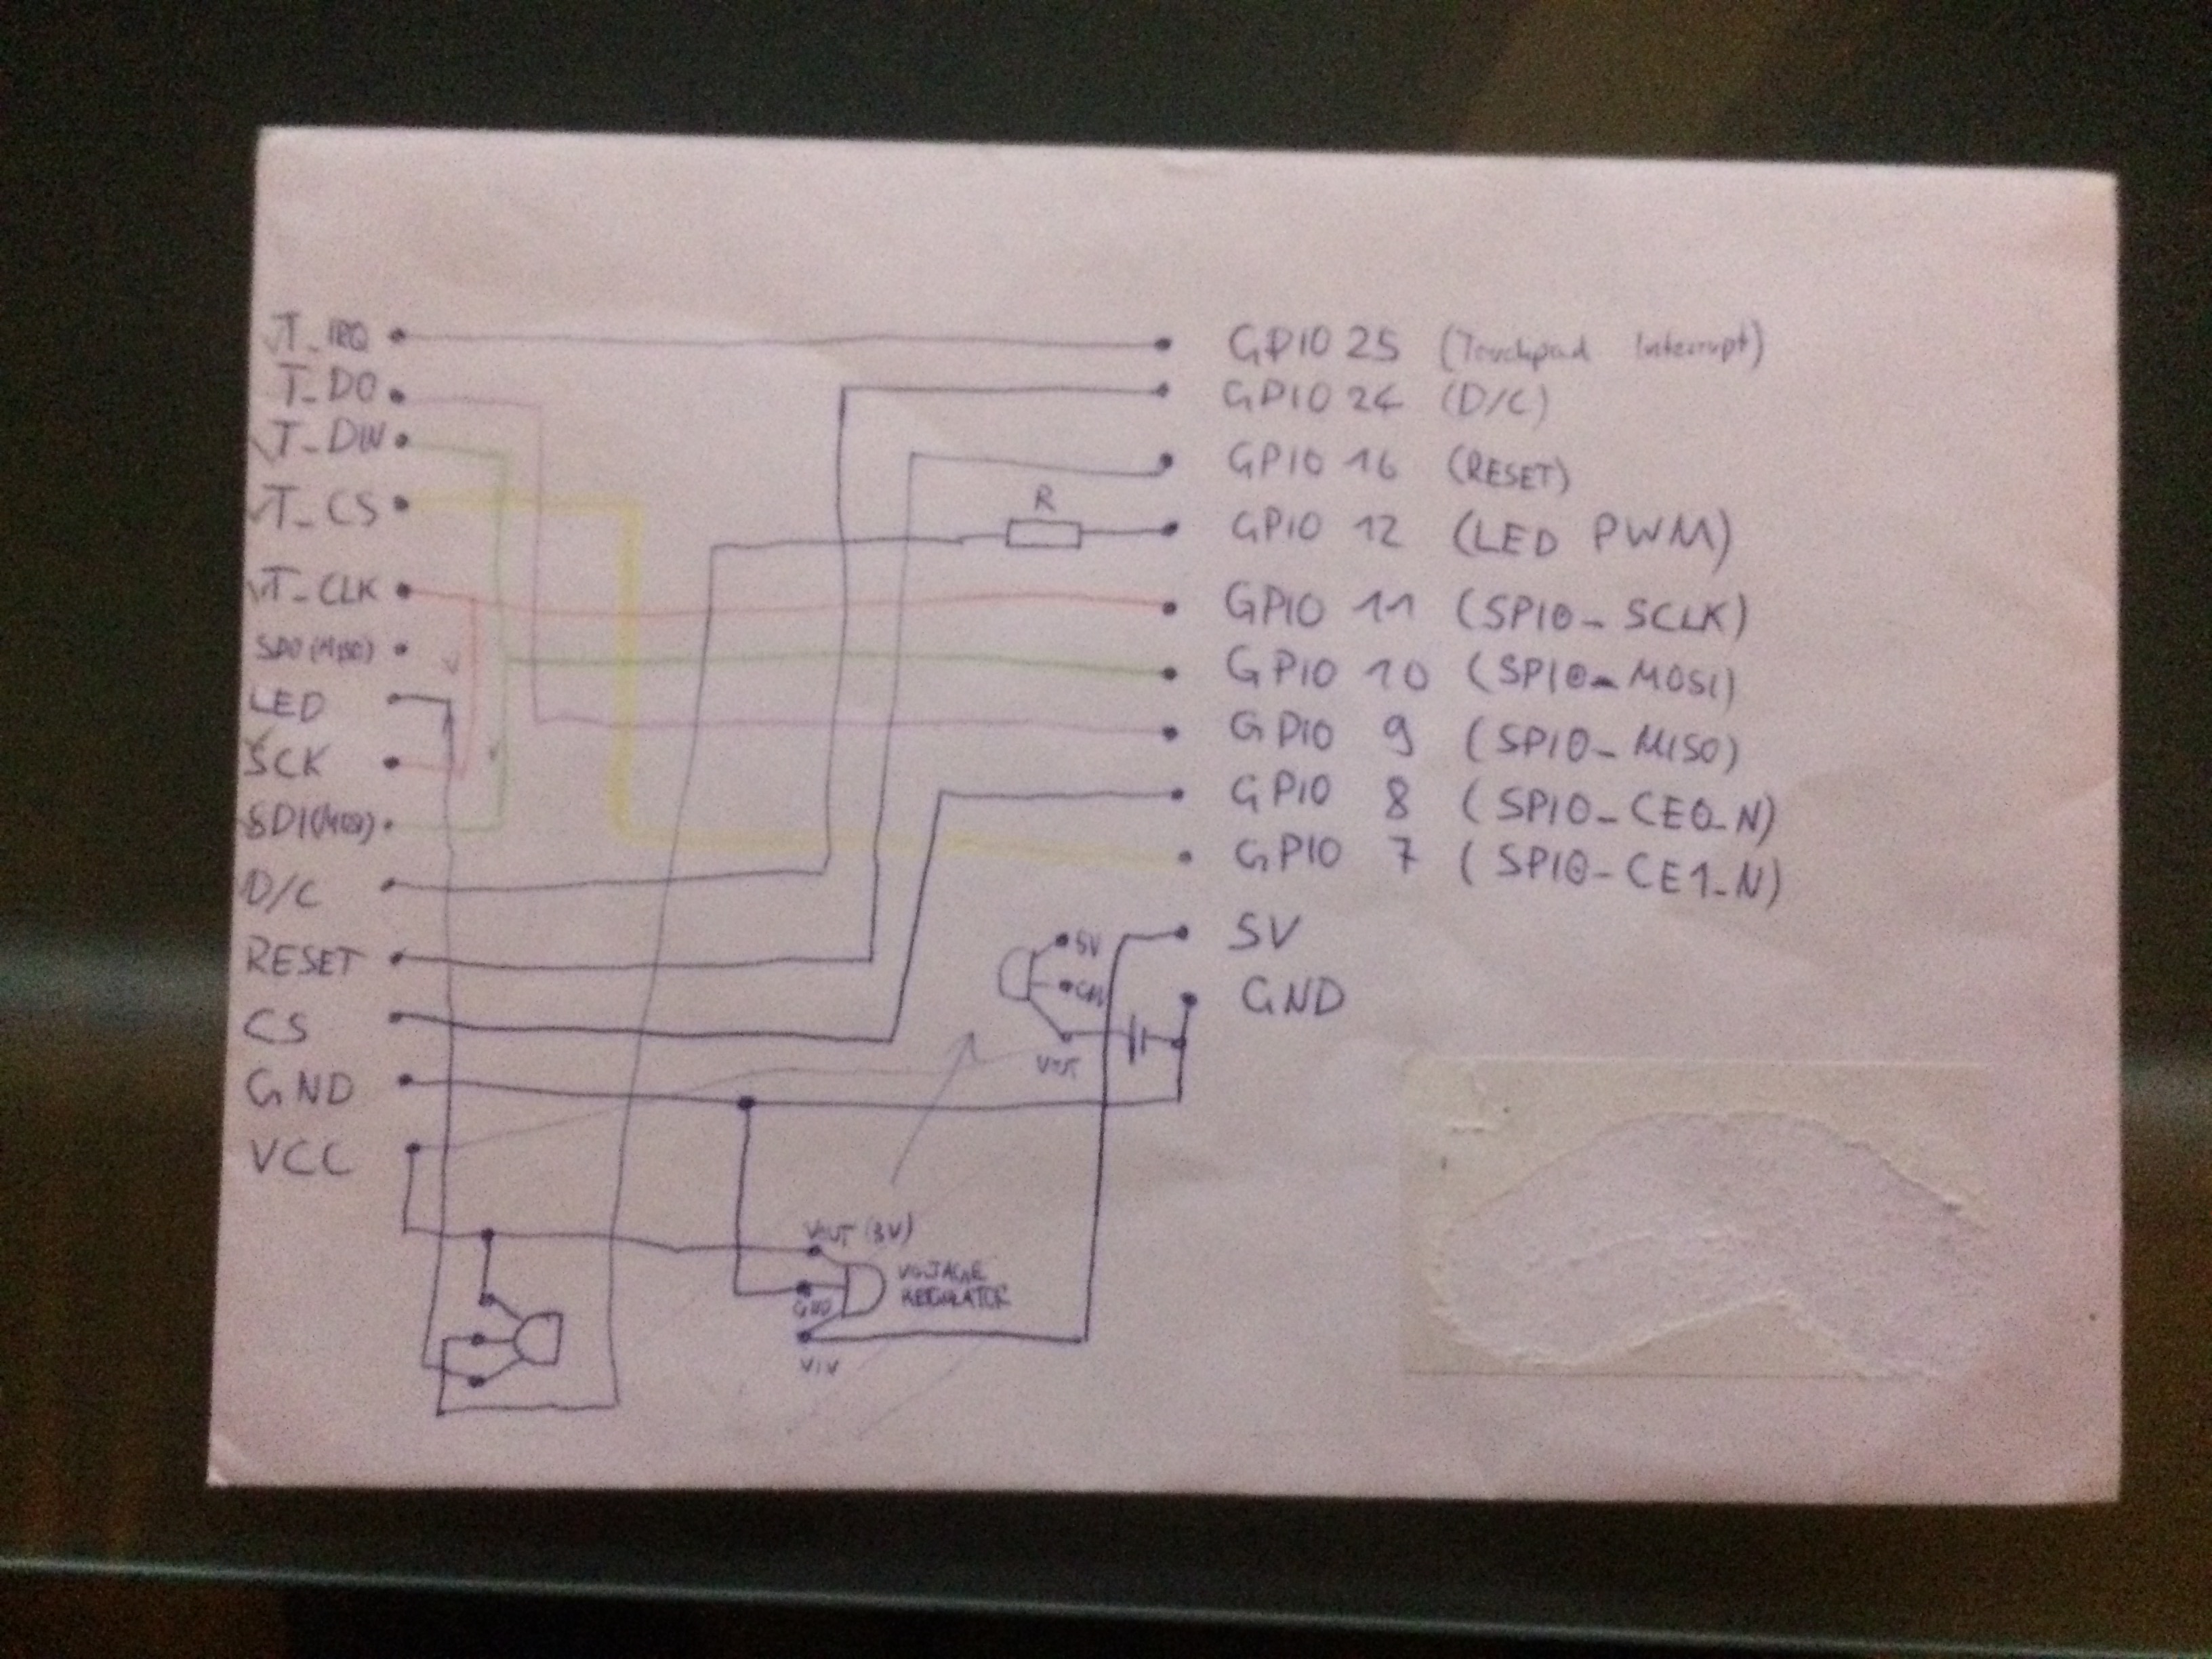 T_IRQ
T_DO
T_DIN
T_CS
T_CLK
SDO (MISO)
LED
SCK
SDI (MOSI)
D/C
RESET
CS
GND
VCC
GPIO 25 (Touchpad Interrupt)
GPIO 24 (D/C)
GPIO 16 (RESET)
R
GPIO 12 (LED PWM)
GPIO 11 (SPI0_SCLK)
GPIO 10 (SPI0_MOSI)
GPIO 9 (SPI0_MISO)
GPIO 8 (SPI0_CE0_N)
GPIO 7 (SPI0_CE1_N)
5V
GND
5V
VOUT
VOUT (3V)
VOLTAGE
REGULATOR
GND
VIN